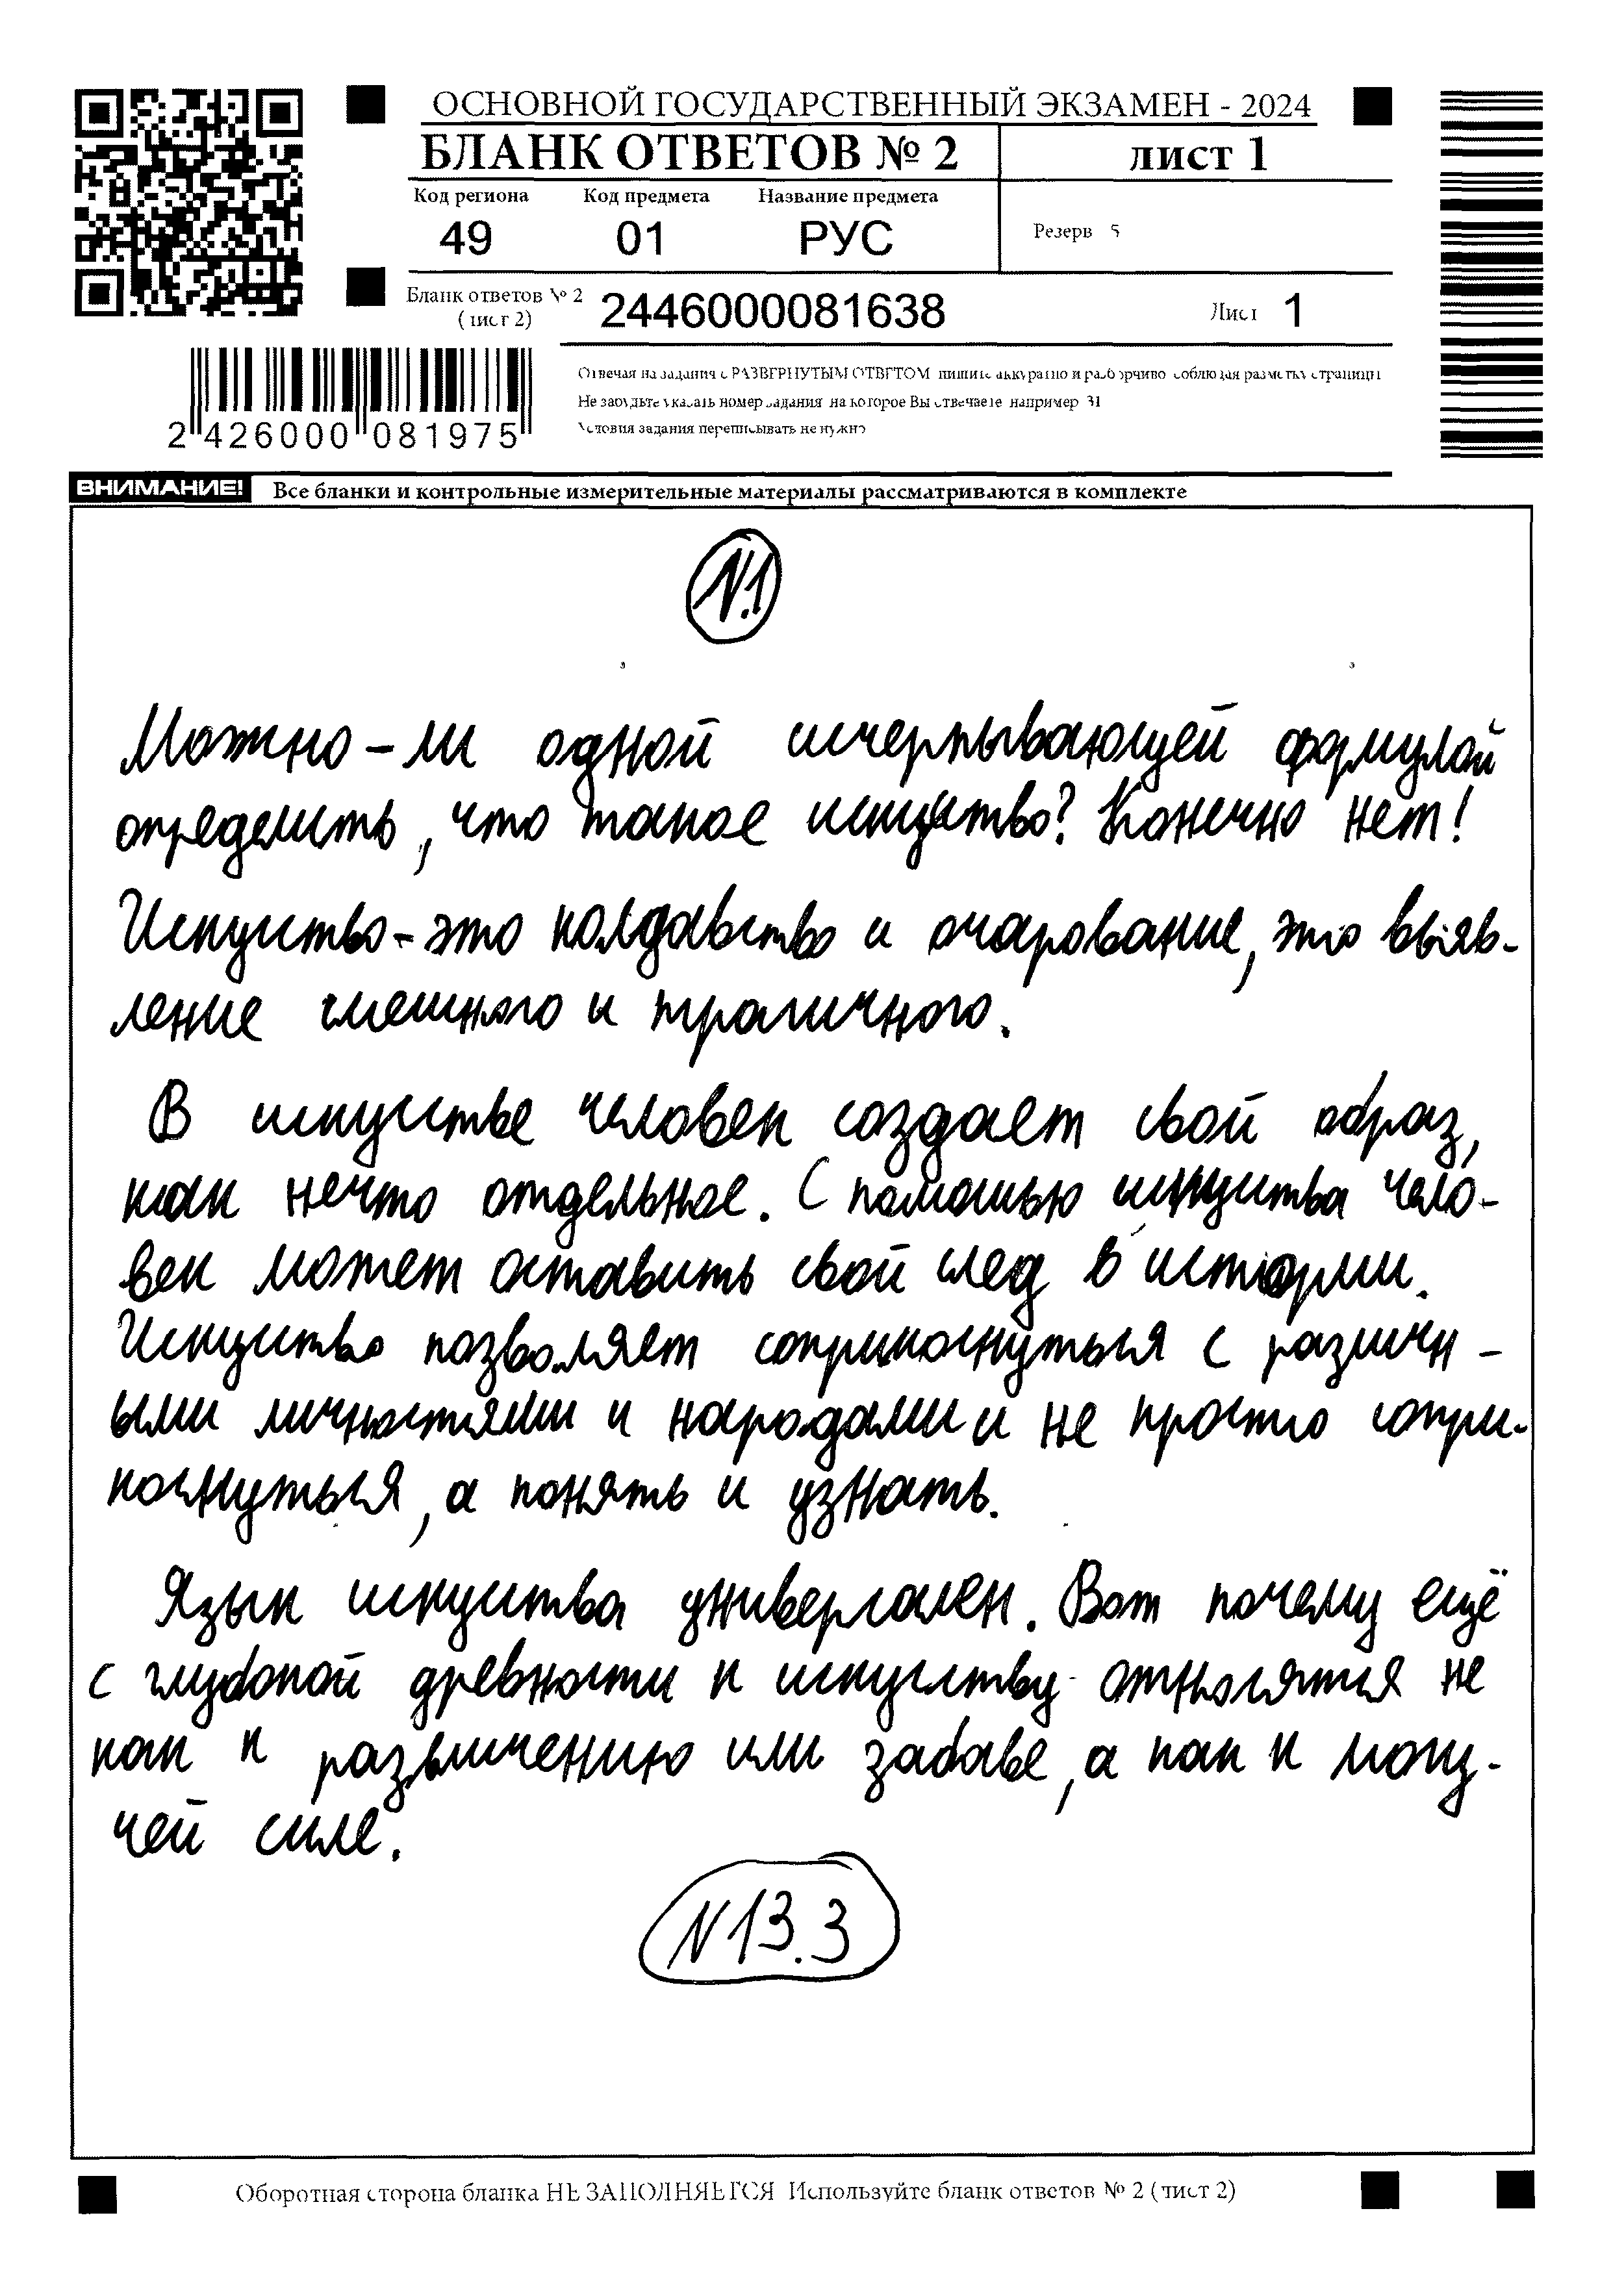 ОСНОВНОЙ ГОСУДАРСТВЕННЫЙ ЭКЗАМЕН - 2024
БЛАНК ОТВЕТОВ № 2 лист 1
Код региона Код предмета Название предмета
49 01 РУС
Резерв 5
Бланк ответов № 2 (лист 2) 2446000081638 Лист 1
Отвечая на задания с РАЗВЕРНУТЫМ ОТВЕТОМ пишите аккуратно и разборчиво соблюдая разметку страницы
Не забудьте указать номер задания на которое Вы отвечаете например 31
Условия задания переписывать не нужно
2 426000 081975
ВНИМАНИЕ! Все бланки и контрольные измерительные материалы рассматриваются в комплекте
N.1
Можно-ли одной исчерпывающей формулой
определить, что такое искуство? Конечно нет!
Искуство-это колдавство и очарование, это выяв-
ление смешного и трагичного.
В искустве человек создает свой образ,
как нечто отдельное. С помошью искуства чело-
век может оставить свой след в истории.
Искуство позволяет соприкоснуться с различн-
ыми личностями и народами и не просто сопри-
коснуться, а понять и узнать.
Язык искуства универсален. Вот почему ещё
с глубокой древности к искусству относятся не
как к развличению или забаве, а как к могу-
чей силе.
N13.3
Оборотная сторона бланка НЕ ЗАПОЛНЯЕТСЯ Используйте бланк ответов № 2 (лист 2)